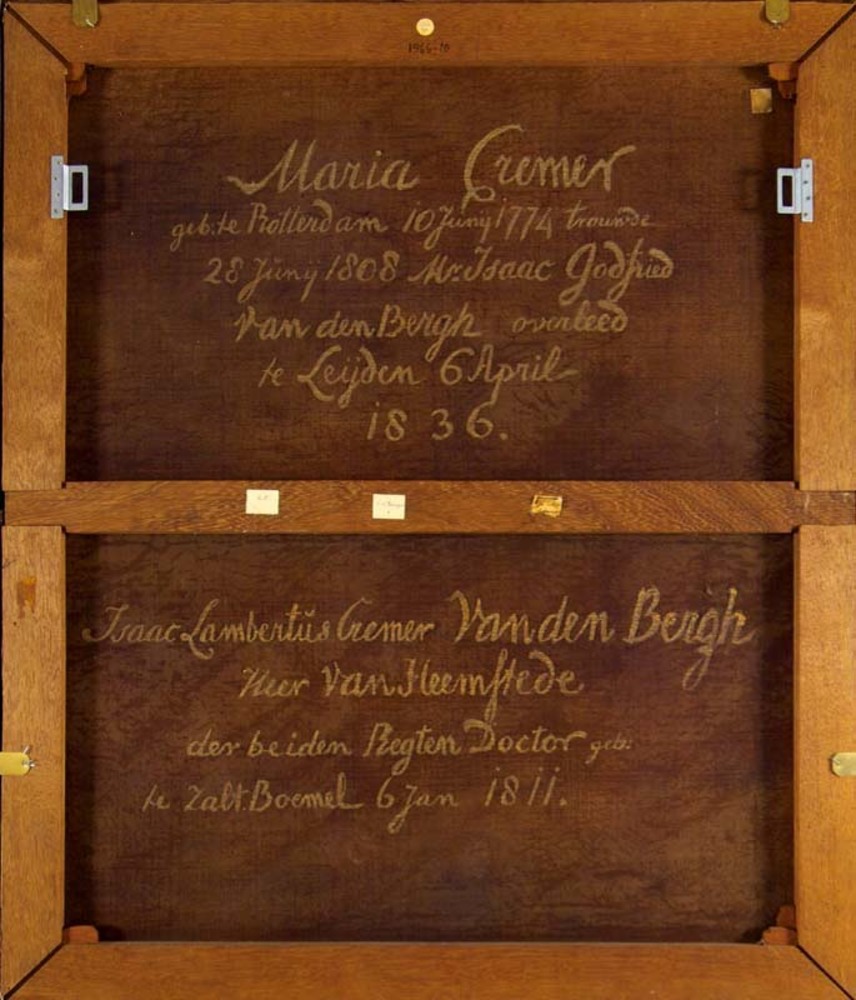 1966-10
Maria Cremer
geb: te Rotterdam 10 Junij 1774 trouwde
28 Junij 1808 Mr. Isaac Godfried
Van den Bergh overleed
te Leijden 6 April
1836.
Isaac Lambertus Cremer Van den Bergh
Heer Van Heemstede
der beiden Regten Doctor geb:
te Zalt. Boemel 6 Jan 1811.